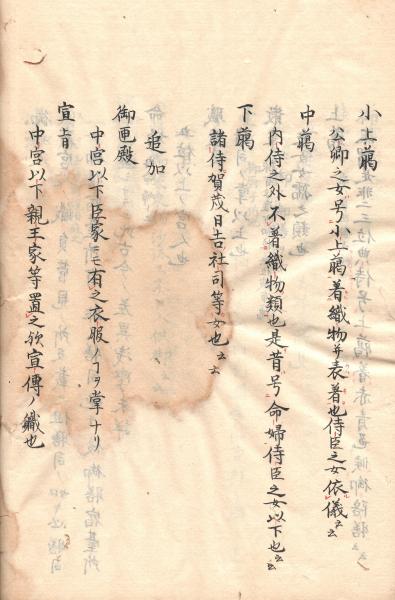 小上﨟
公卿之女号小上﨟着織物并表着也侍臣之女依儀云云
中﨟
内侍之外不着織物類也是昔号命婦侍臣之女以下也云云
下﨟
諸侍賀茂日吉社司等女也云云
追加
御匣殿
中宮以下臣家ニモ有之衣服ノヿヲ掌ナリ
宣旨
中宮以下親王家等置之欤宣傳ノ職也